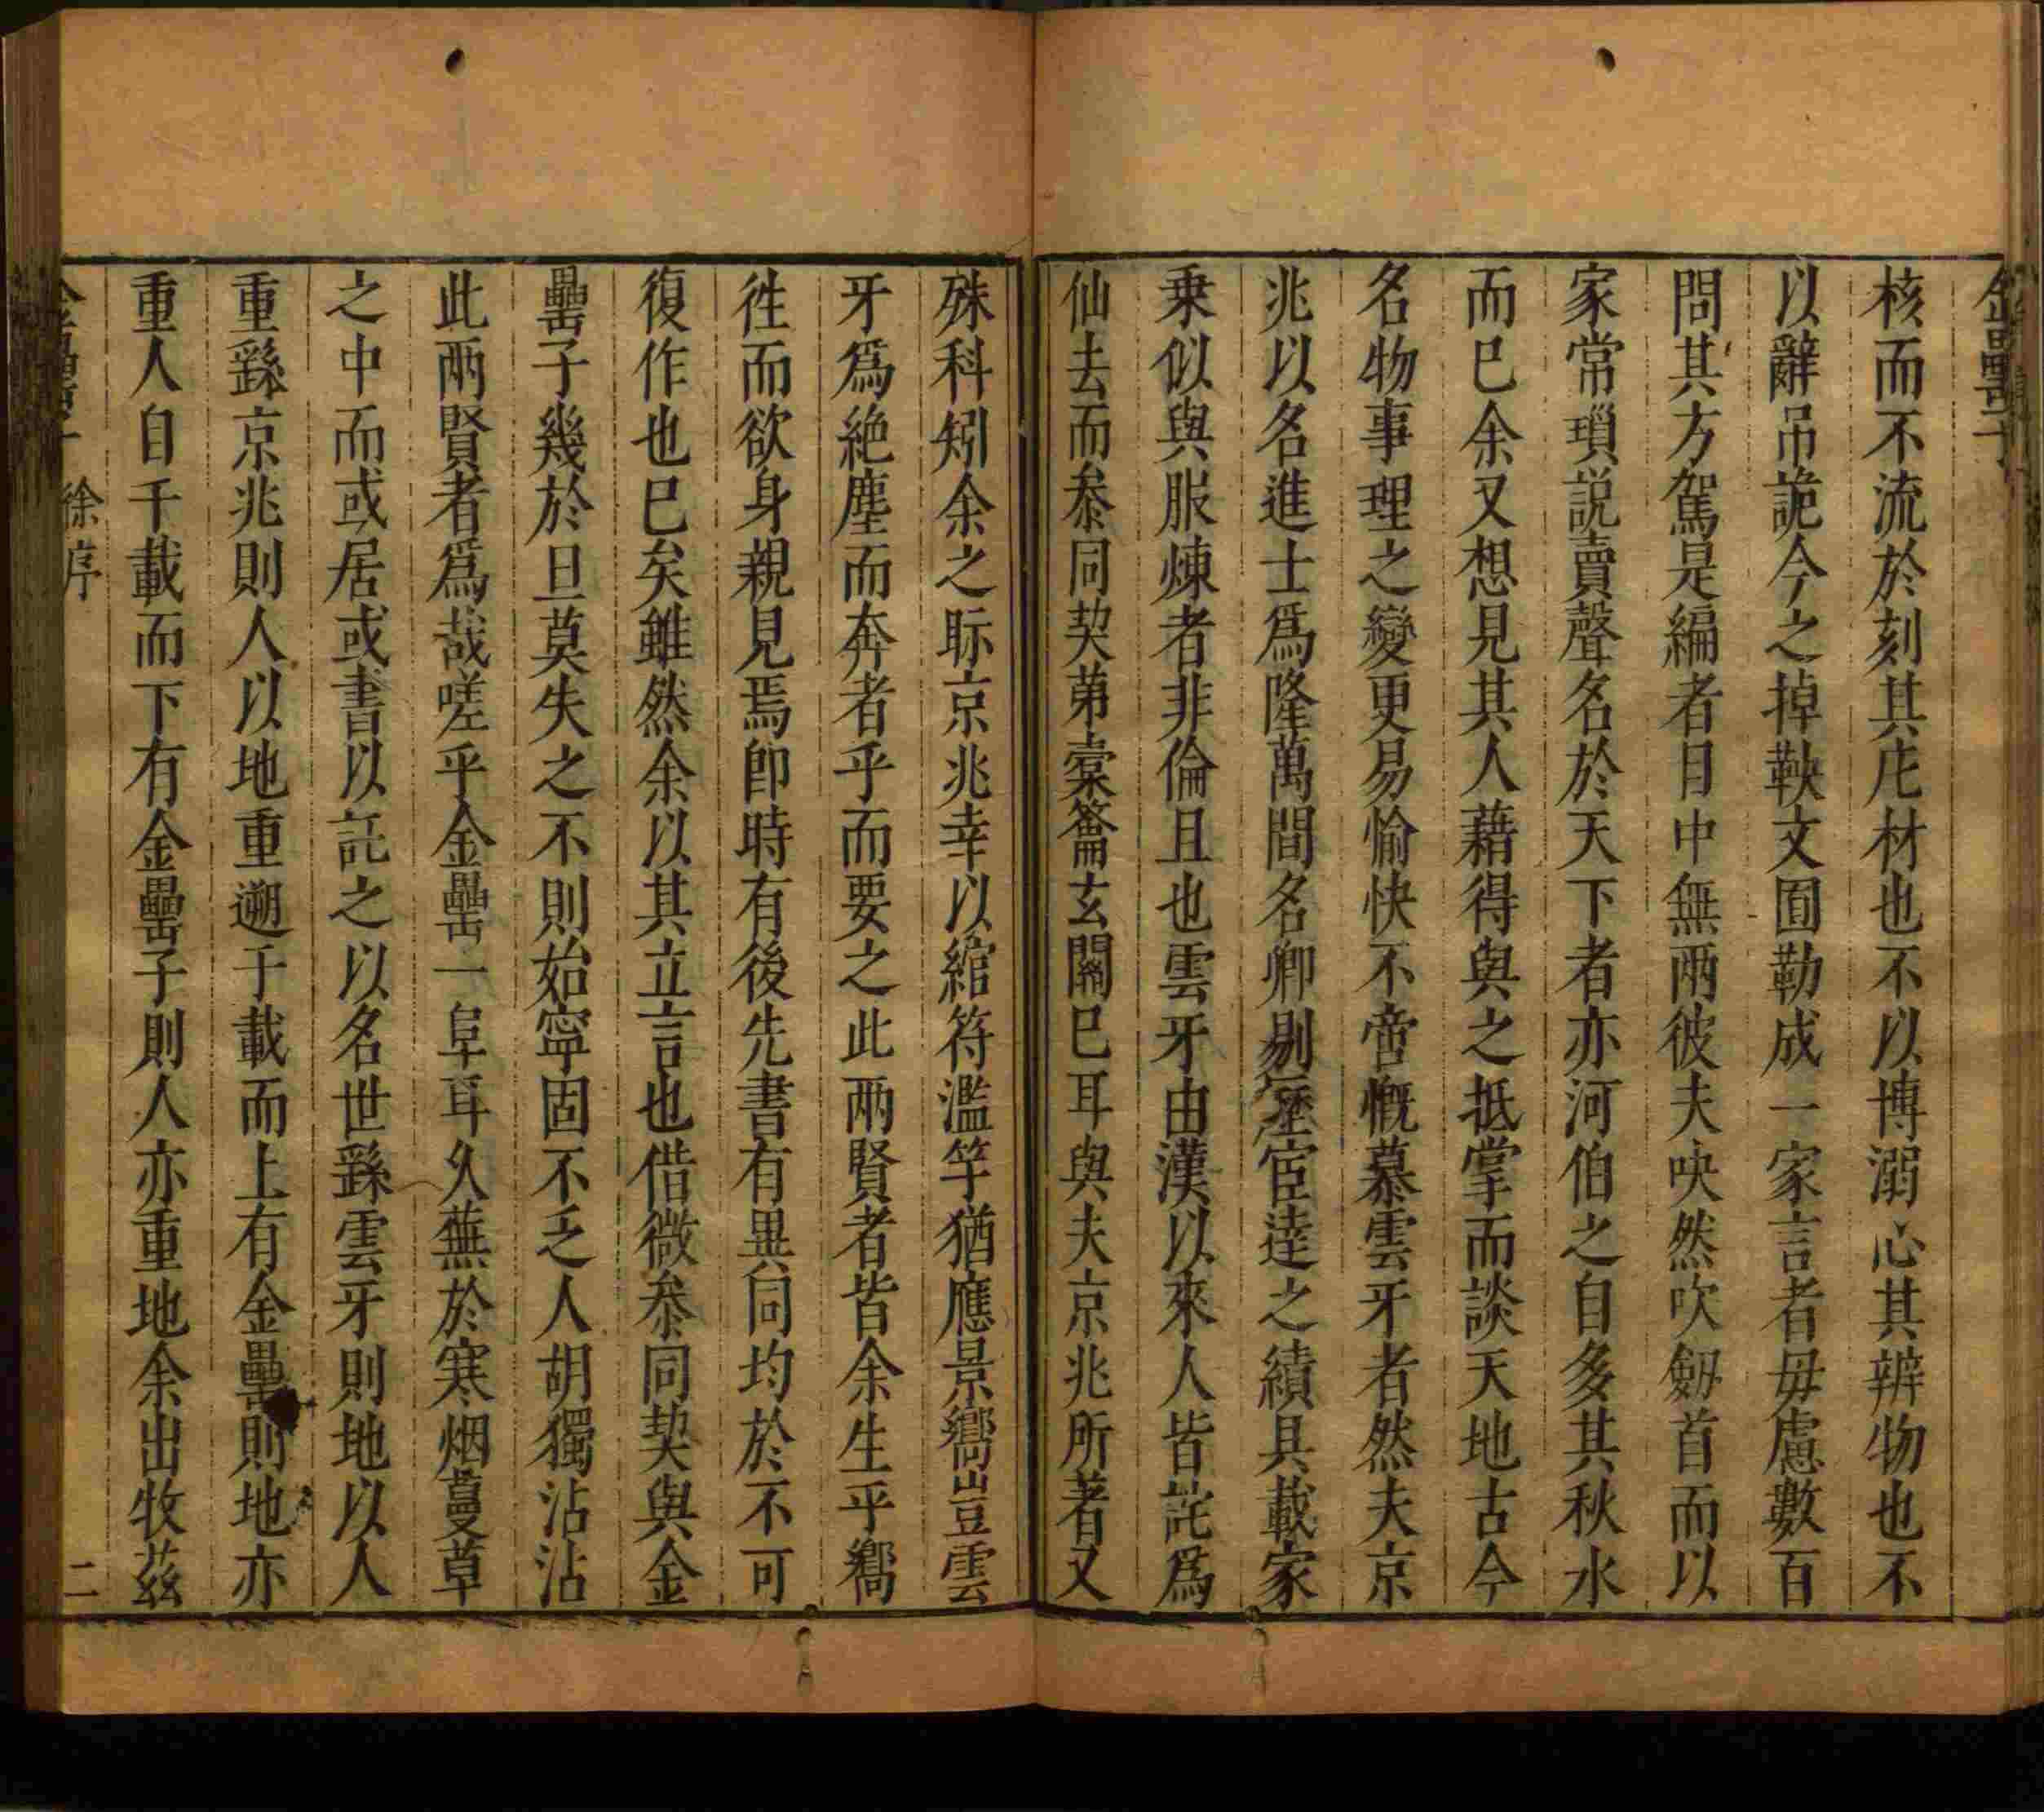 金罍子
核而不流於刻其庀材也不以博溺心其辨物也不
以辭吊詭今之掉鞅文囿勒成一家言者毋慮數百
問其方駕是編者目中無兩彼夫吷然吹劒首而以
家常瑣説賣聲名於天下者亦河伯之自多其秋水
而已余又想見其人藉得與之抵掌而談天地古今
名物事理之變更易愉快不啻慨慕雲牙者然夫京
兆以名進士爲隆萬間名卿剔歷宦逹之績具載家
乗似與服煉者非倫且也雲牙由漢以來人皆詫爲
仙去而叅同契第橐籥玄關已耳與夫京兆所著又
殊科矧余之眎京兆幸以綰符濫竽猶應景嚮豈雲
牙爲絶塵而奔者乎而要之此兩賢者皆余生平嚮
徃而欲身親見焉卽時有後先書有異同均於不可
復作也已矣雖然余以其立言也偕微叅同契與金
罍子幾於旦莫失之不則始寧固不乏人胡獨沾沾
此兩賢者爲哉嗟乎金罍一阜耳久蕪於寒烟蔓草
之中而或居或書以託之以名世繇雲牙則地以人
重繇京兆則人以地重遡千載而上有金罍則地亦
重人自千載而下有金罍子則人亦重地余出牧茲
金罍子 徐序 二